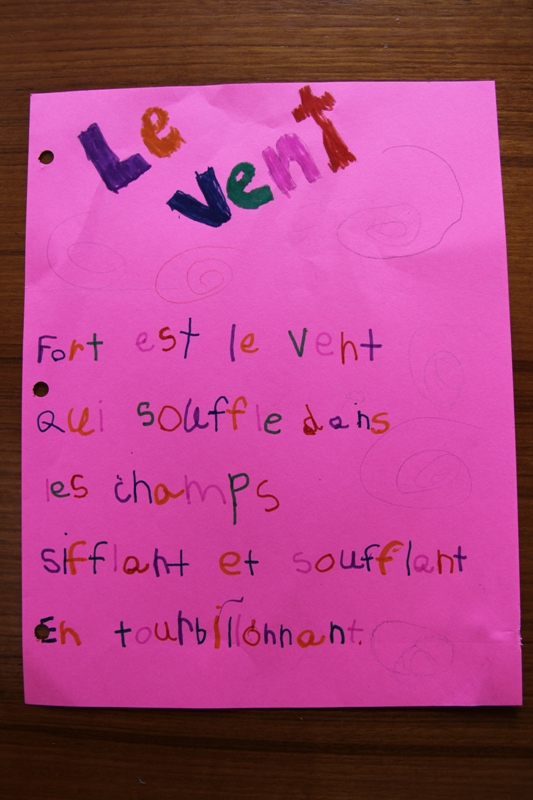 Le
vent
Fort est le vent
Qui souffle dans
les champs
Sifflant et soufflant
En tourbillonnant.